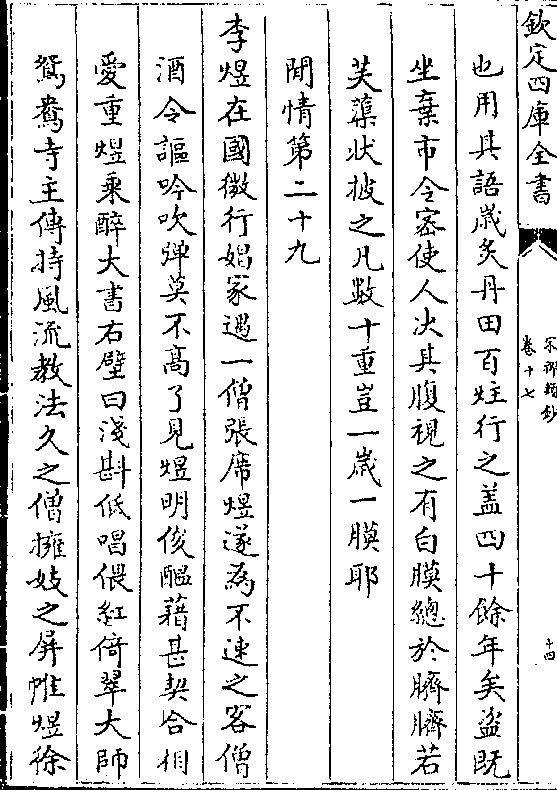 欽定四庫全書
宋稗類鈔
卷十七
十四
也用其語歲炙丹田百炷行之盖四十餘年矣盜既
坐棄市令密使人决其腹視之有白膜總於臍臍若
芙蕖狀披之凡數十重豈一歲一膜耶
閒情第二十九
李煜在國微行娼家遇一僧張席煜遂為不速之客僧
酒令謳吟吹彈莫不髙了見煜明俊醖藉甚契合相
愛重煜乘醉大書右壁曰淺斟低唱偎紅倚翠大師
鴛鴦寺主傳持風流教法久之僧擁妓之屏帷煜徐